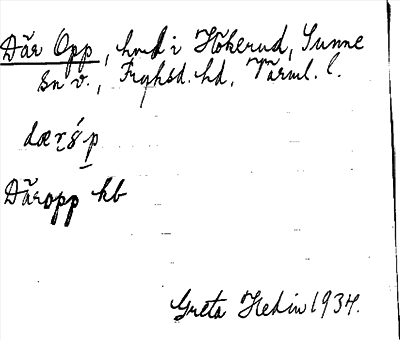 Där Opp, hmd i Hökerud, Sunne
sn v., Fryksd. hd, Värml. l.
dær
Däropp kb
Greta Hedin 1934.